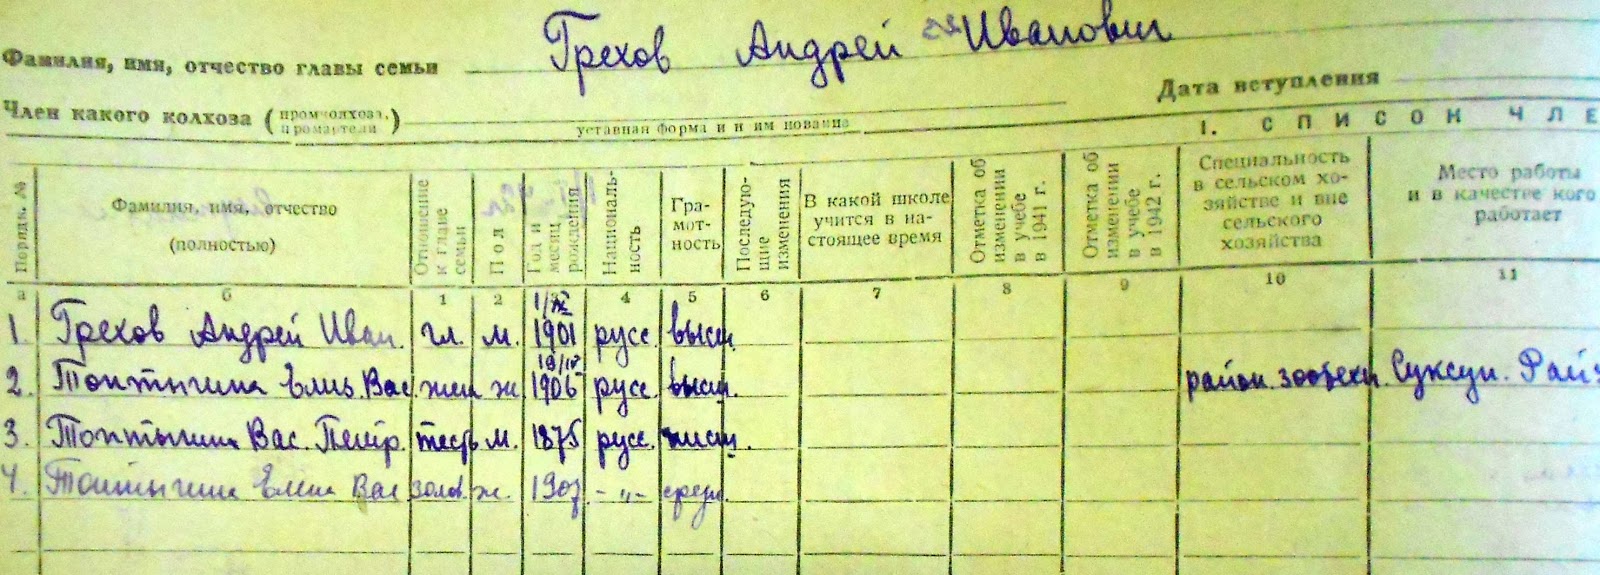 Грехов Андрей Иванович
Фамилия, имя, отчество главы семьи
Дата вступления
Член какого колхоза (промколхоза, промартели)
уставная форма и н им нование
I. СПИСОК ЧЛЕ
Порядк. №
Фамилия, имя, отчество (полностью)
Отношение к главе семьи
Пол
Год и месяц рождения
Националь-ность
Гра-мот-ность
Последую-щие изменения
В какой школе учится в на-стоящее время
Отметка об изменении в учебе в 1941 г.
Отметка об изменении в учебе в 1942 г.
Специальность в сельском хо-зяйстве и вне сельского хозяйства
Место работы и в качестве кого работает
а б 1 2 3 4 5 6 7 8 9 10 11
1. Грехов Андрей Иван. гл. м. 1/IX 1901 русс. высш.
2. Топтыгина Елиз. Вас. жен ж. 1906 русс. высш. район. зоотехн. Суксун. Рай
3. Топтыгин Вас. Петр. тесть м. 1875 русс. низш.
4. Топтыгина Елен Вас золов. ж. 1907 -„- средн.